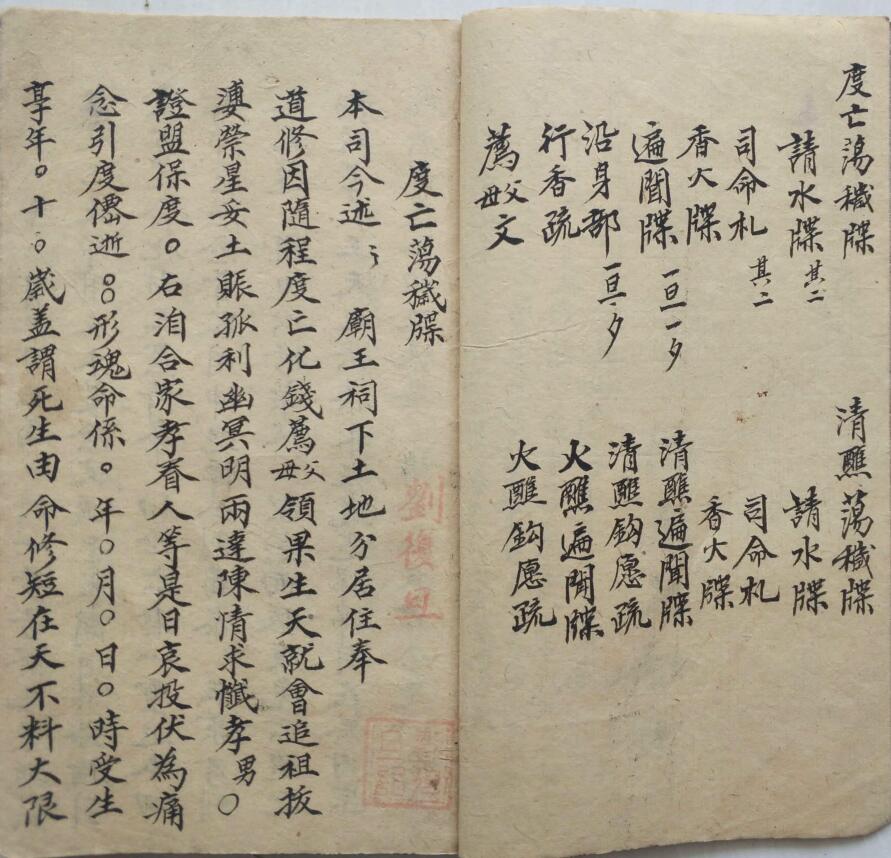 度亡蕩穢牒
請水牒 其二
司命札 其二
香火牒
遍聞牒 一旦一夕
沿身部 一旦一夕
行香疏
薦父母文
清醮蕩穢牒
請水牒
司命札
香火牒
清醮遍聞牒
清醮鈎愿疏
火醮遍聞牒
火醮鈎愿疏
度亡蕩穢牒
本司今述〻 廟王祠下土地分居住奉
道修因隨程度亡化錢薦父母領果生天就會追祖拔
婆禜星妥土賑孤利幽冥明兩達陳情求懺孝男〇
證盟保度〇右洎合家孝眷人等是日哀投伏為痛
念引度僊逝〇〇形魂命係〇年〇月〇日〇時受生
享年〇十〇歲盖謂死生由命修短在天不料大限
劉復旦